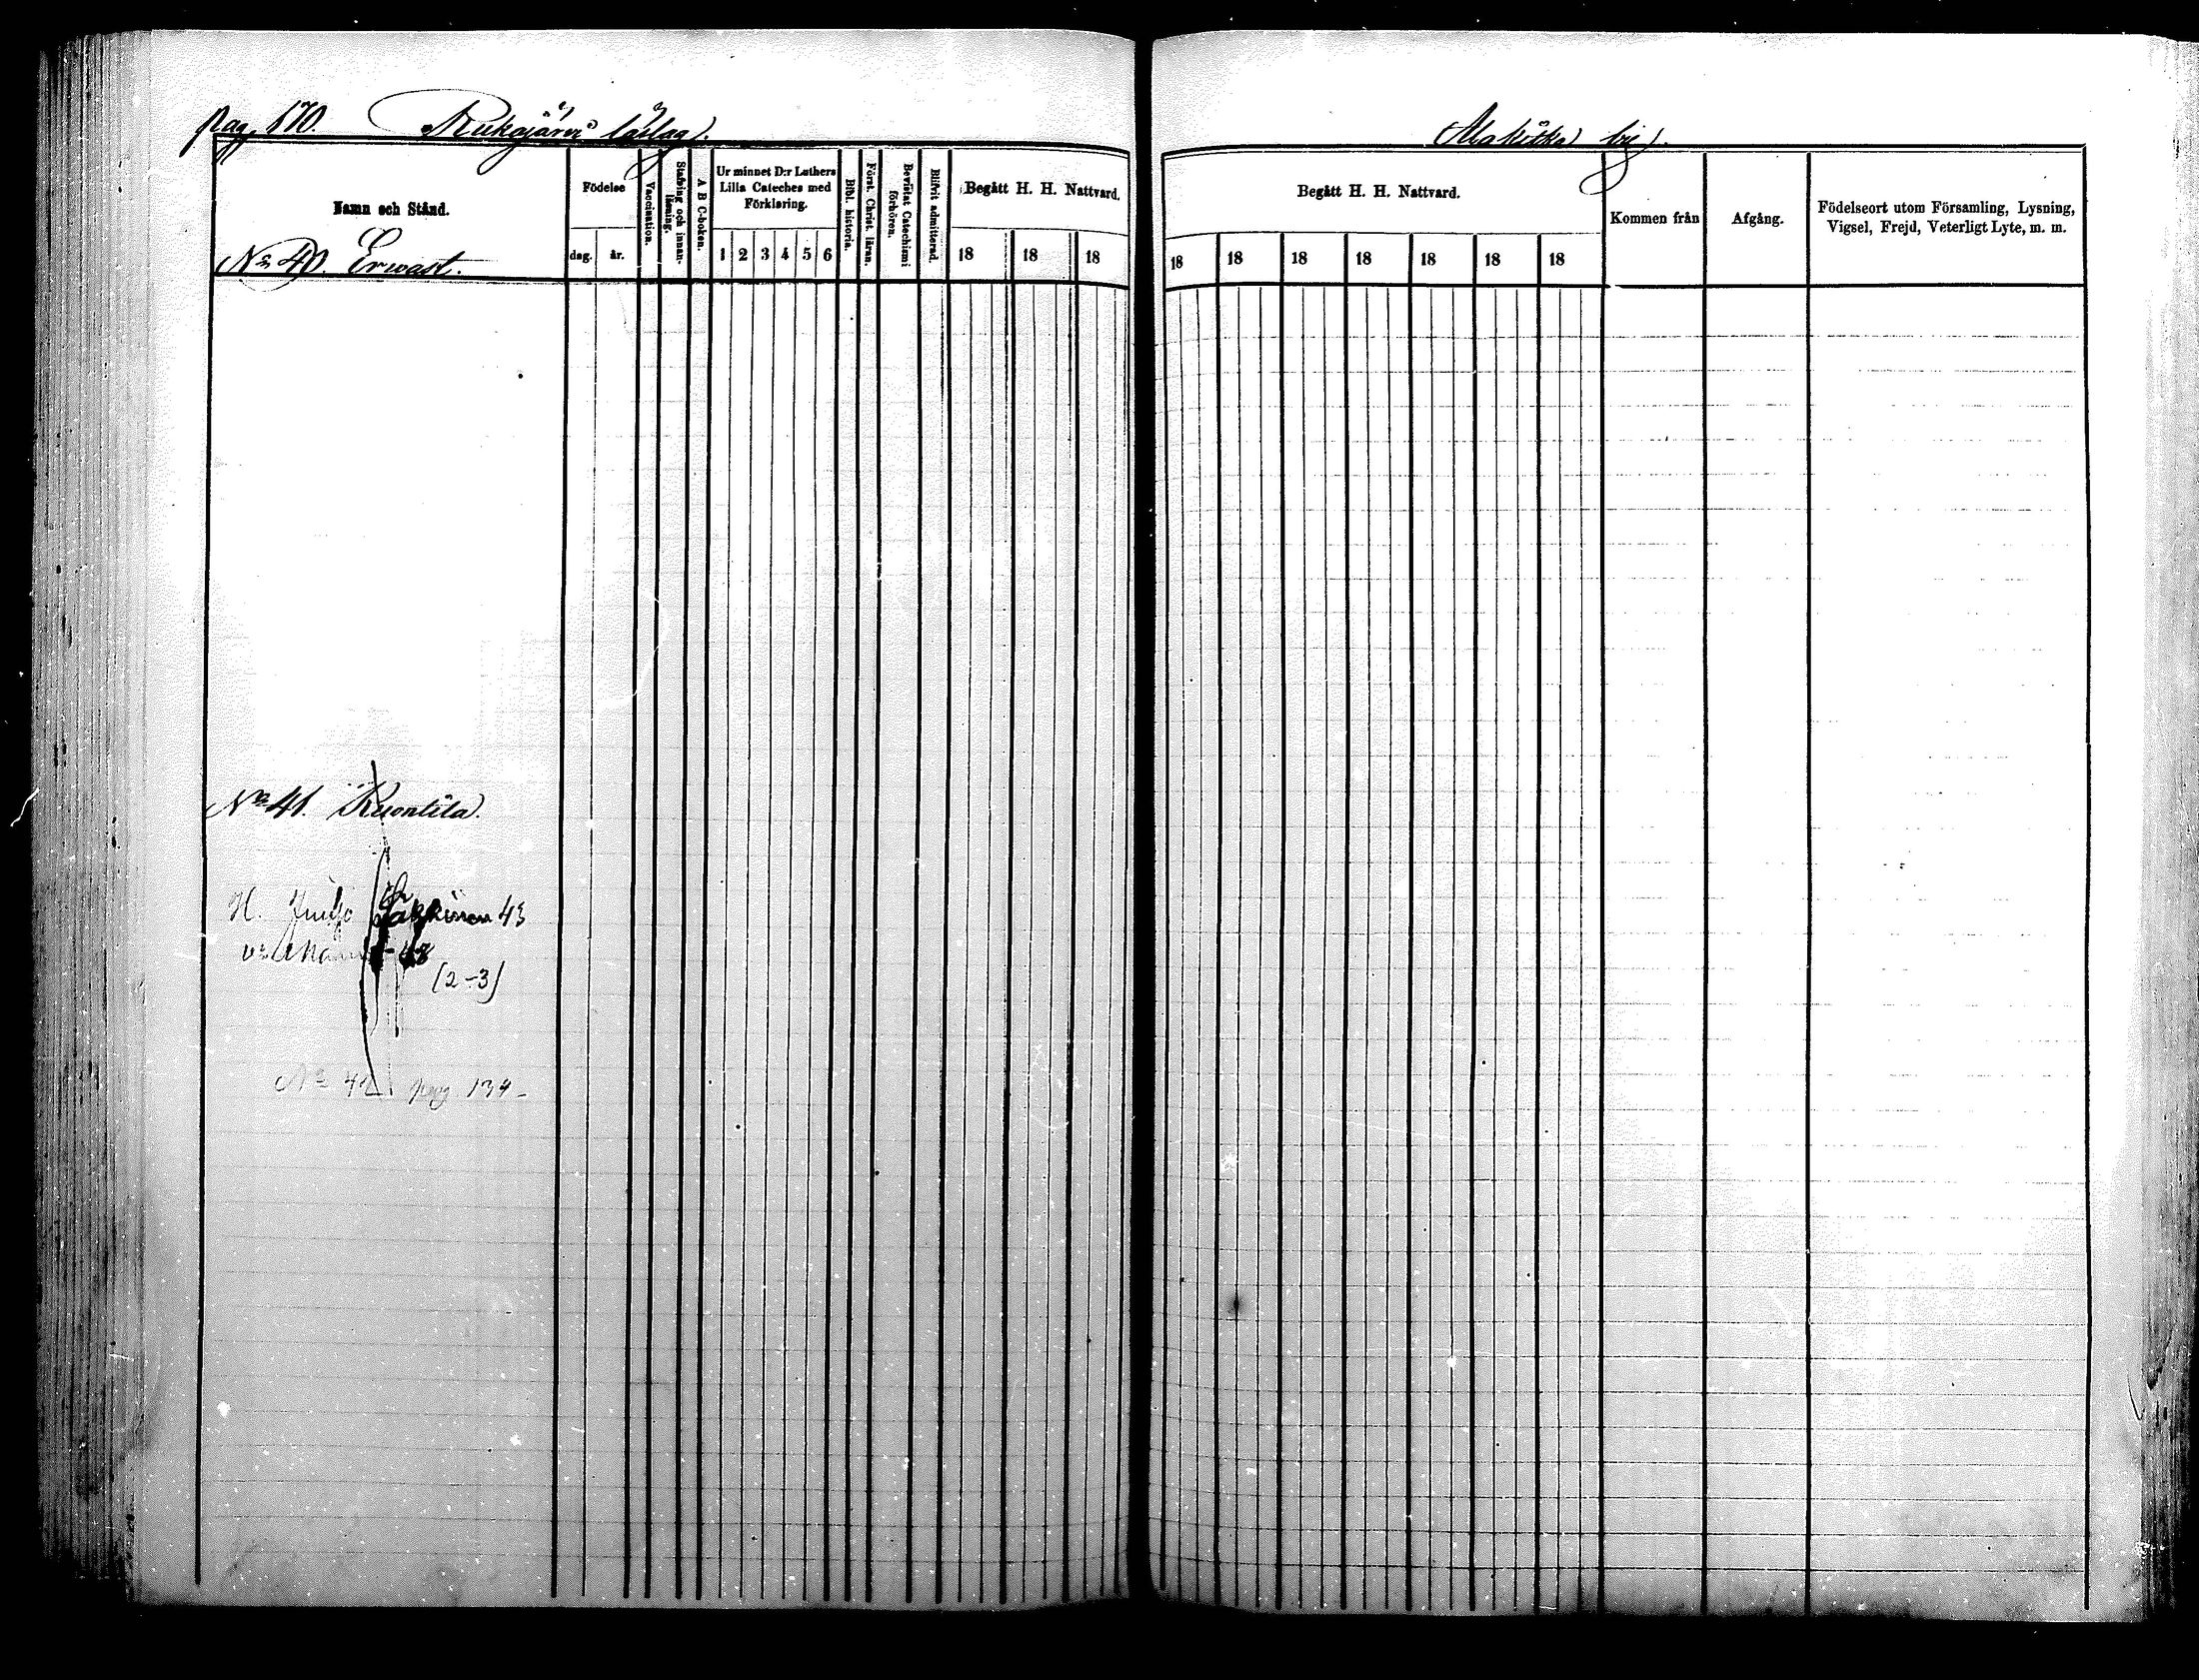 pag. 170. Rukajärvi läslag.
Alakitka by.
Namn och Stånd.
No 40. Erwast.
Födelse
dag. år.
Vaccination.
Stafning och innanläsning.
A B C-boken.
Ur minnet D:r Luthers Lilla Cateches med Förklaring.
1 2 3 4 5 6
Bibl. historia.
Först. Christ. läran.
Bevistat Catechismi förhören.
Blifvit admitterad.
Begått H. H. Nattvard.
18 18 18
Begått H. H. Nattvard.
18 18 18 18 18 18 18
Kommen från
Afgång.
Födelseort utom Församling, Lysning, Vigsel, Frejd, Veterligt Lyte, m. m.
No 41. Kuontila.
H. Juho Säkkinen 43
48
(2-3)
No 42 pag. 134